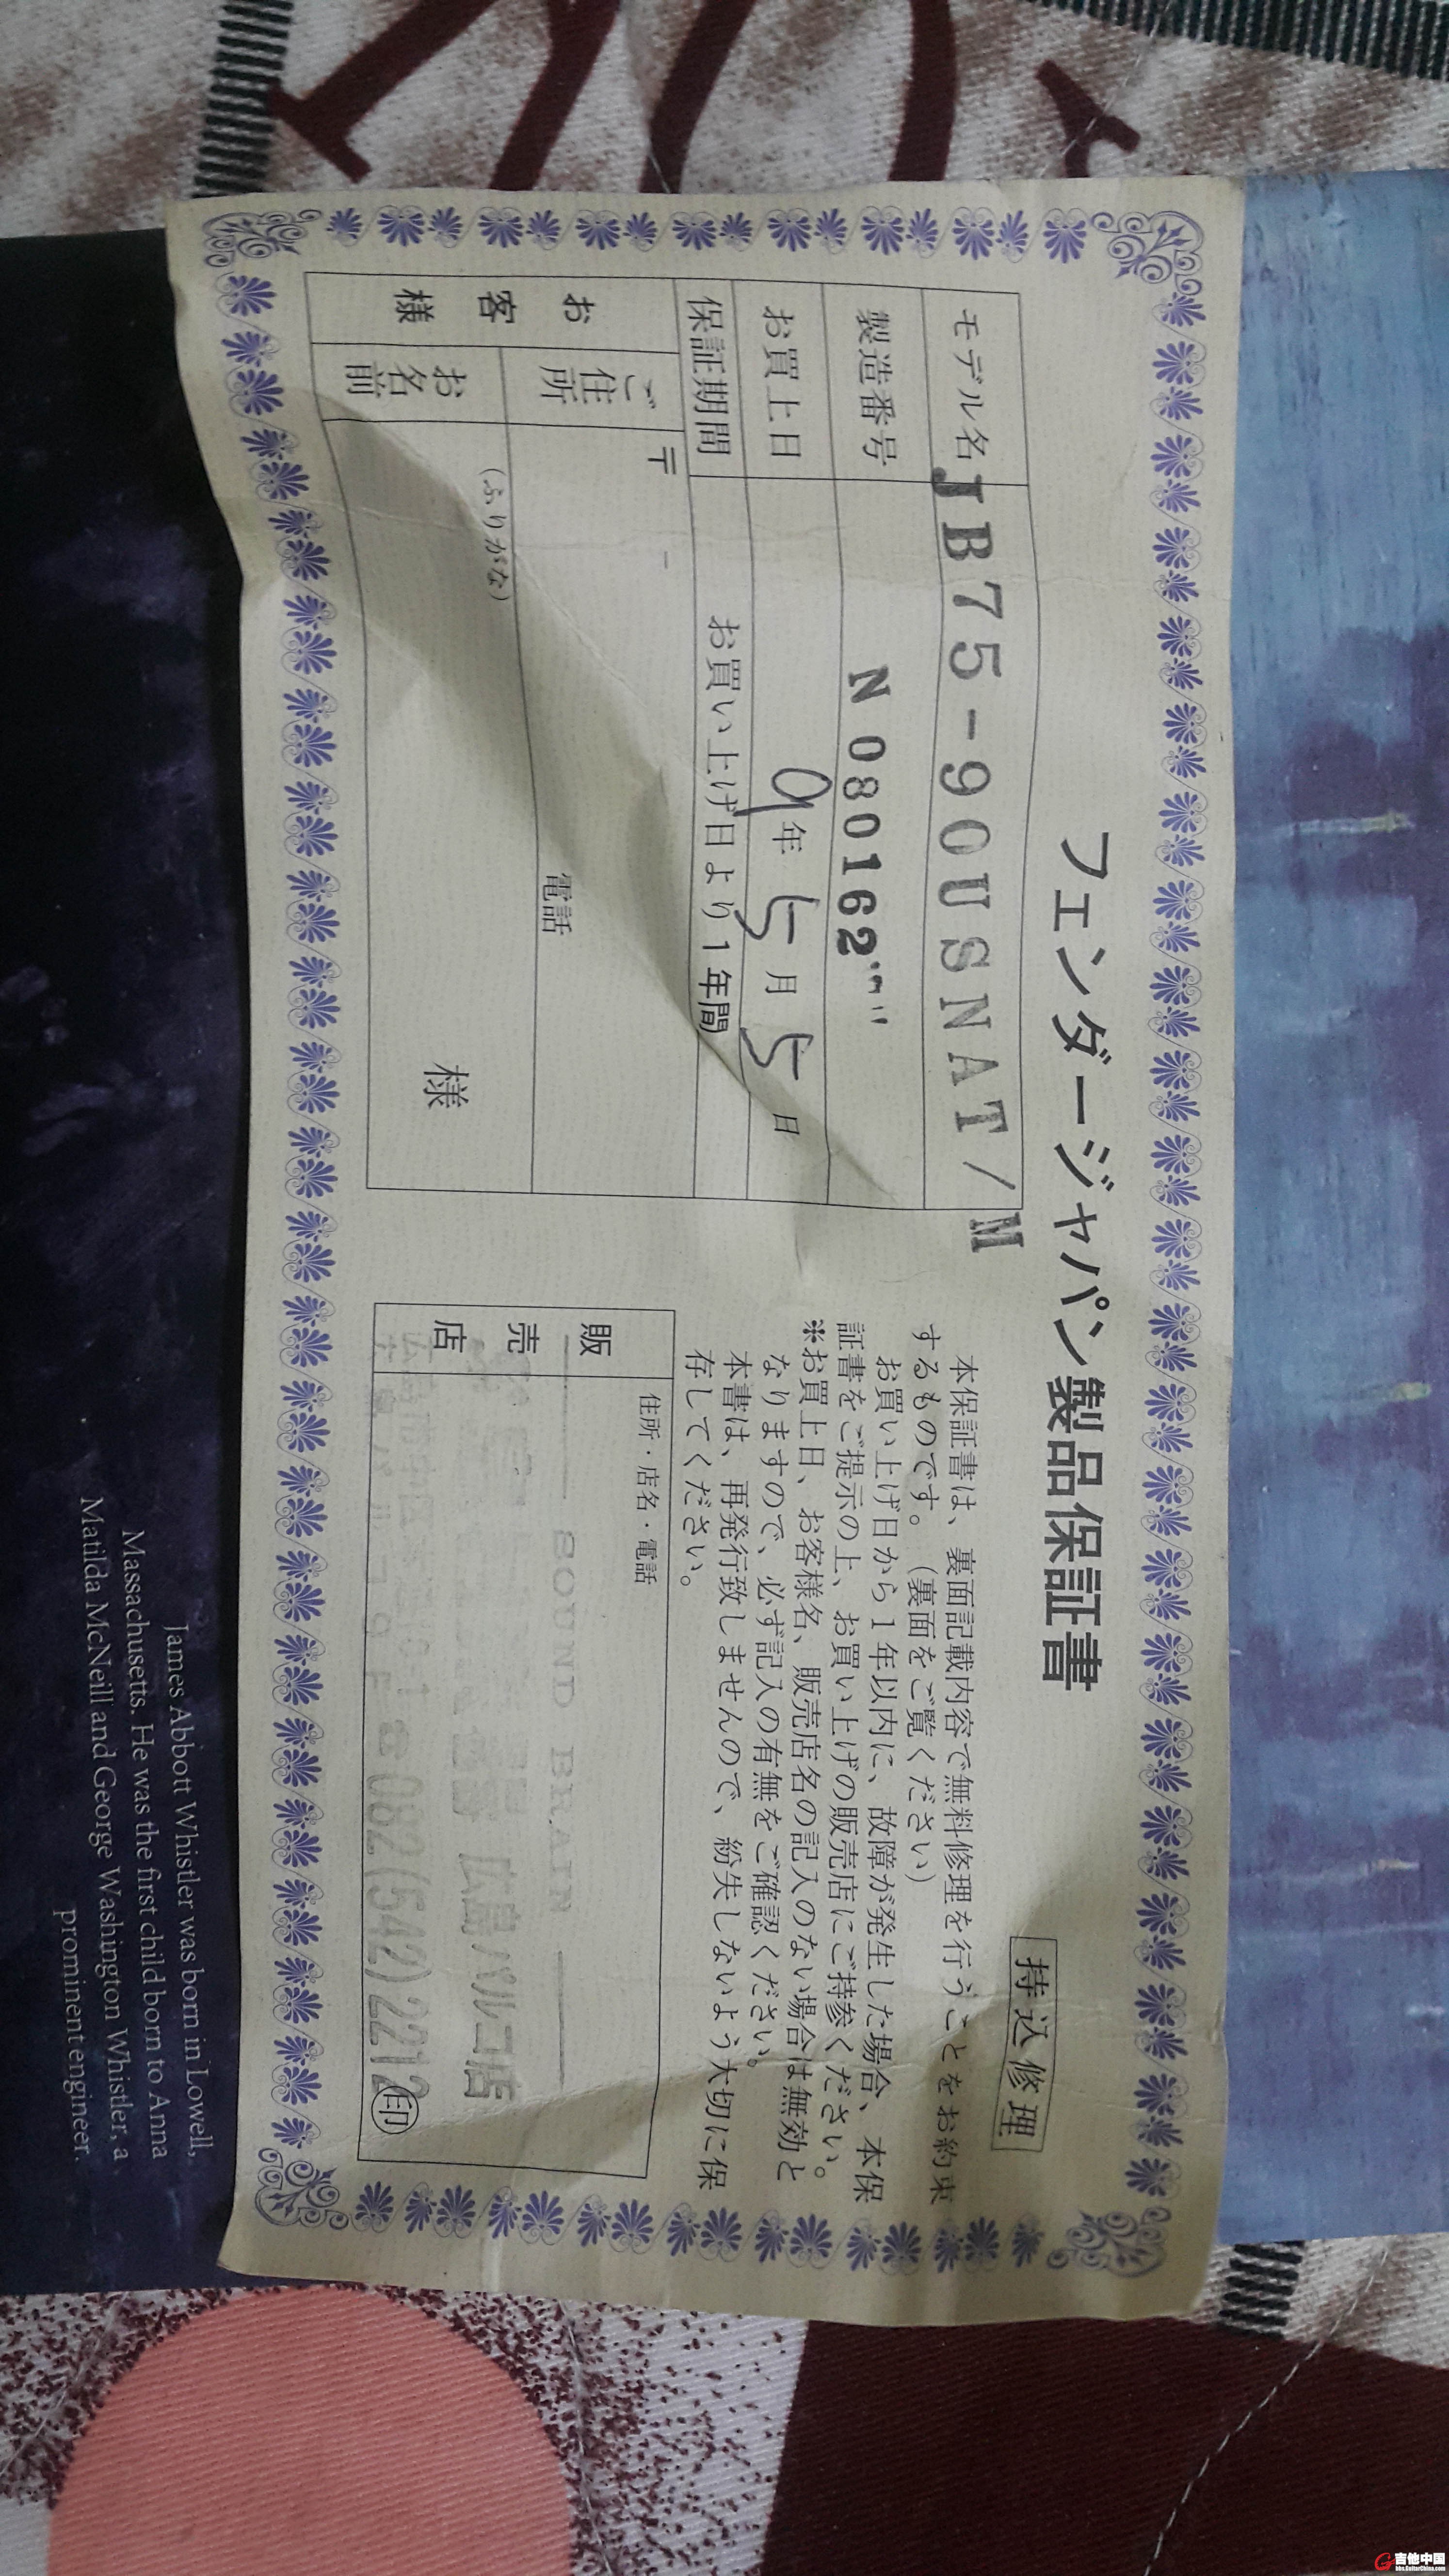 フェンダージャパン製品保証書
持込修理
モデル名 JB75-90USNAT/M
製造番号 N080162
お買上日 9年5月5日
保証期間 お買い上げ日より1年間
お客様
ご住所 〒
電話
お名前 (ふりがな)
様
本保証書は、裏面記載内容で無料修理を行うことをお約束
するものです。(裏面をご覧ください)
お買い上げ日から1年以内に、故障が発生した場合、本保
証書をご提示の上、お買い上げの販売店にご持参ください。
※お買上日、お客様名、販売店名の記入のない場合は無効と
なりますので、必ず記入の有無をご確認ください。
本書は、再発行致しませんので、紛失しないよう大切に保
存してください。
販売店
住所・店名・電話
SOUND BRAIN
広島パルコ店
☎082(542)2212
印
James Abbott Whistler was born in Lowell,
Massachusetts. He was the first child born to Anna
Matilda McNeill and George Washington Whistler, a
prominent engineer.
吉他中国
bbs.GuitarChina.com